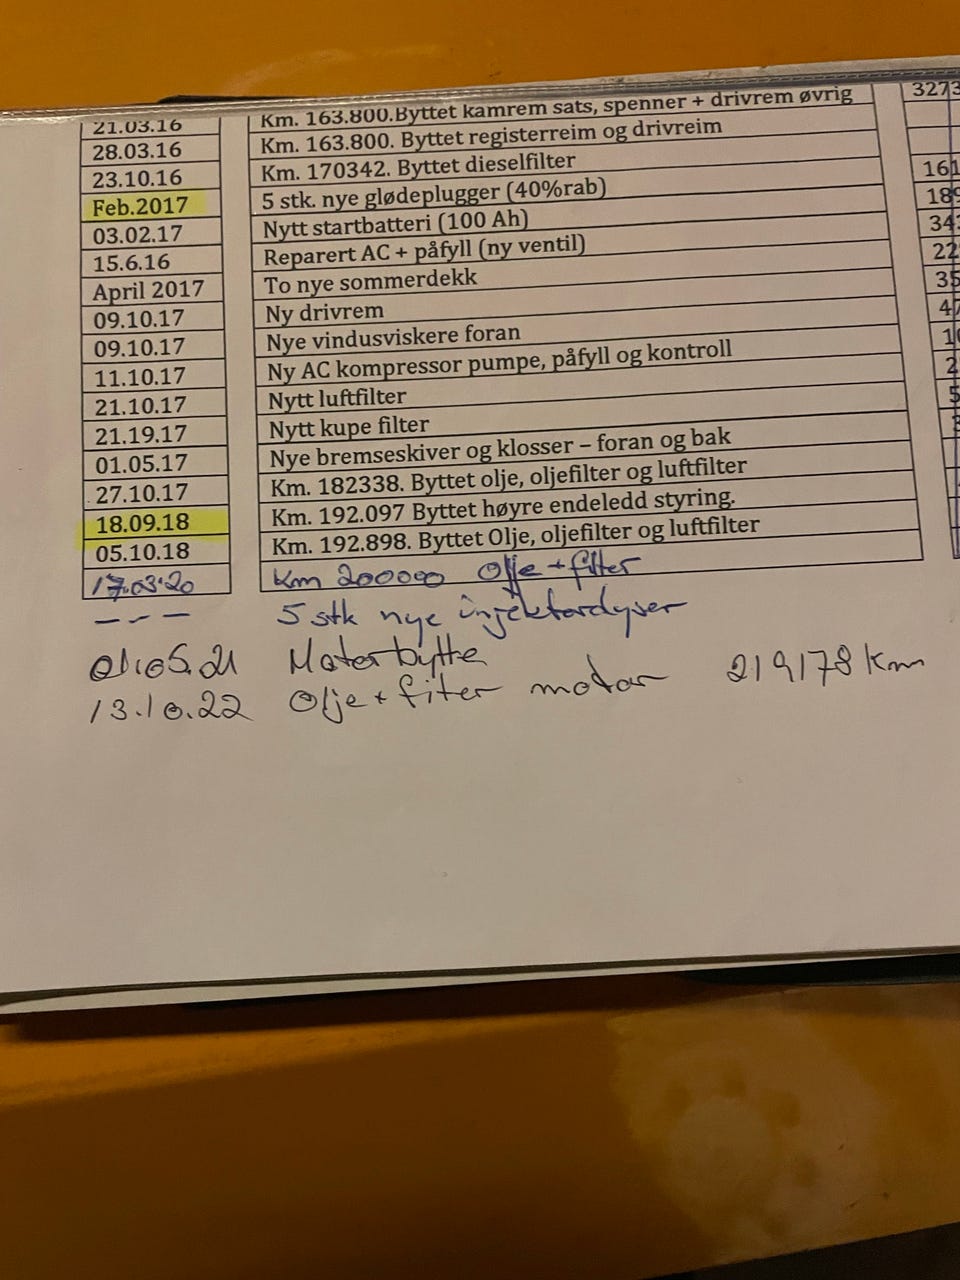 21.03.16 Km. 163.800.Byttet kamrem sats, spenner + drivrem øvrig 3273
28.03.16 Km. 163.800. Byttet registerreim og drivreim
23.10.16 Km. 170342. Byttet dieselfilter
Feb.2017 5 stk. nye glødeplugger (40%rab) 161
03.02.17 Nytt startbatteri (100 Ah) 189
15.6.16 Reparert AC + påfyll (ny ventil) 34
April 2017 To nye sommerdekk 22
09.10.17 Ny drivrem 35
09.10.17 Nye vindusviskere foran 47
11.10.17 Ny AC kompressor pumpe, påfyll og kontroll 1
21.10.17 Nytt luftfilter 2
21.19.17 Nytt kupe filter 5
01.05.17 Nye bremseskiver og klosser – foran og bak
27.10.17 Km. 182338. Byttet olje, oljefilter og luftfilter
18.09.18 Km. 192.097 Byttet høyre endeledd styring.
05.10.18 Km. 192.898. Byttet Olje, oljefilter og luftfilter
17.03.20 Km 200000 Olje + filter
- - - 5 stk nye injektordyser
01.05.21 Motorbytte
13.10.22 Olje + filter motor 219178 Km